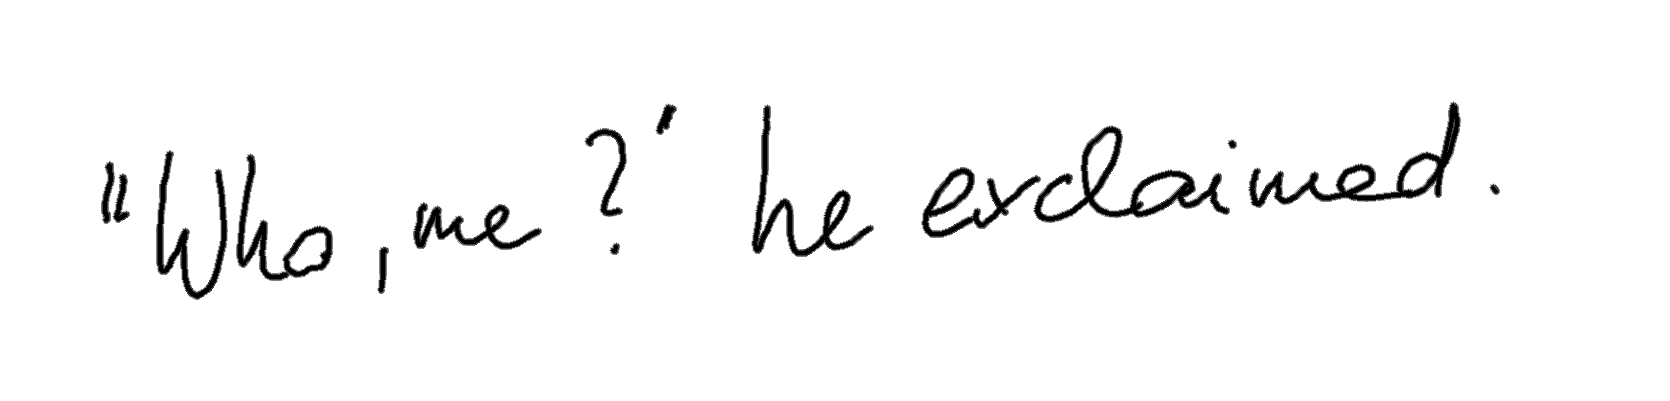 "Who, me?" he exclaimed.